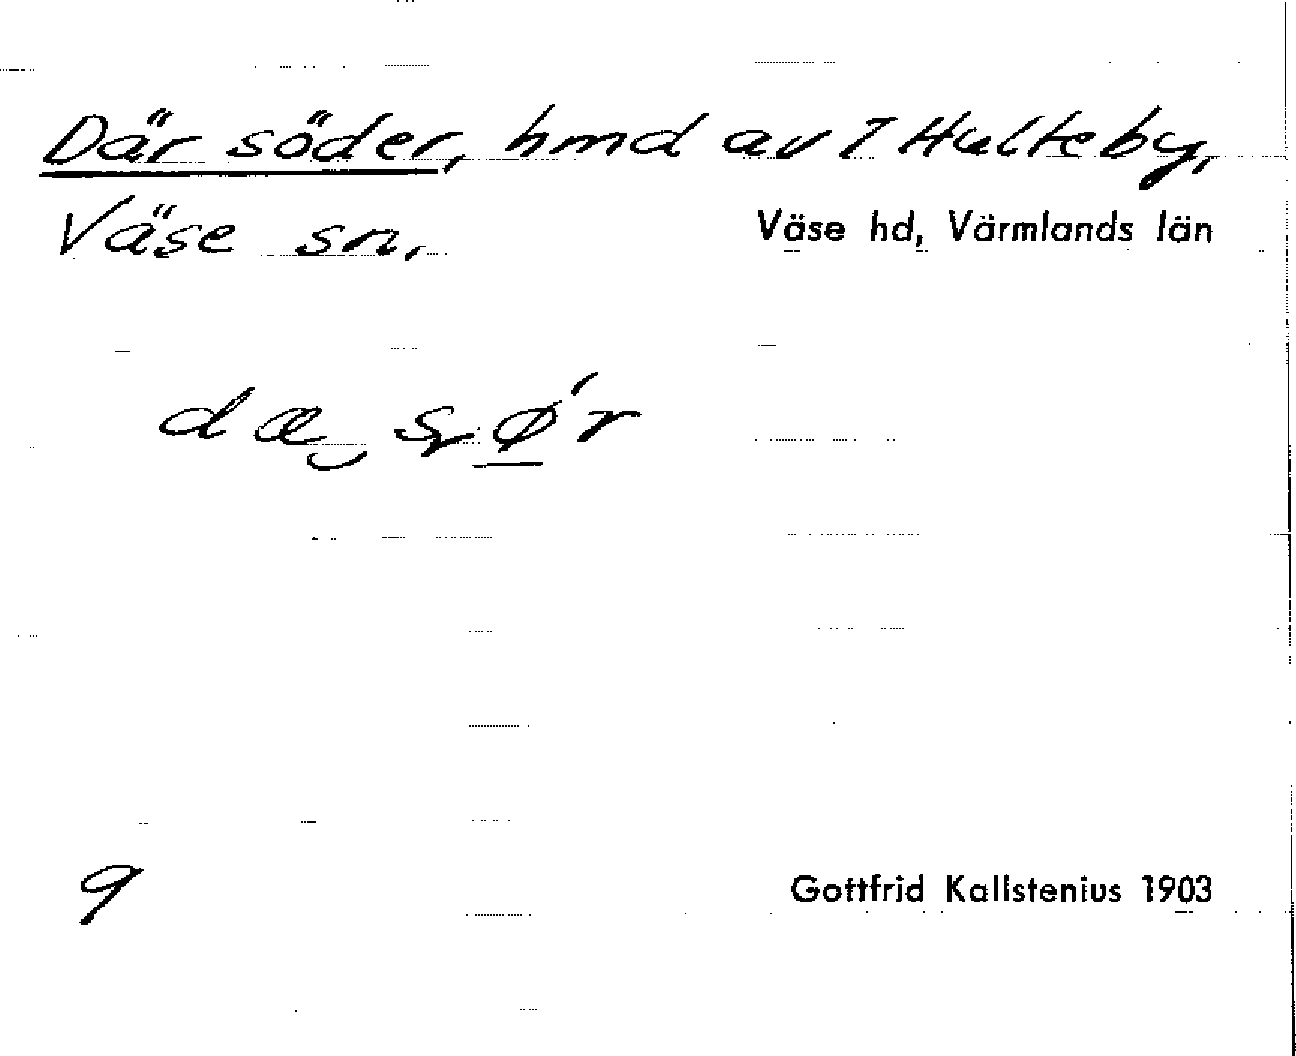 Där söder, hmd av 7 Hulteby,
Väse sn.
Väse hd, Värmlands län
dæ sør
9
Gottfrid Kallstenius 1903